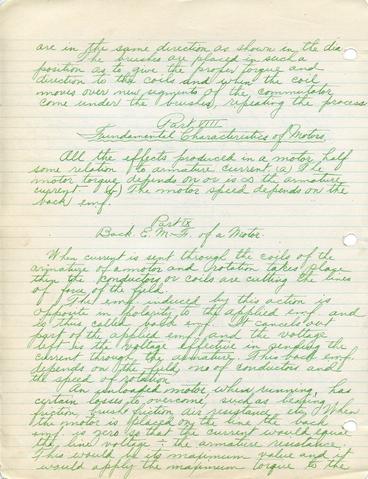 are in the same direction as shown in the dia
The brushes are placed in such a
position as to give the proper torque and
direction to the coils and when the coil
moves over new segments of the commutator
come under the brushes, repeating the process
Part VIII
Fundamental Characteristics of Motors.
All the effects produced in a motor half
some relation to armature current (a) The
motor torque depends on or is as the armature
current (b) The motor speed depends on the
back emf.
Part IX
Back E.M.F. of a Motor
When current is sent through the coils of the
armature of a motor and rotation takes place
then the conductors or coils are cutting the lines
of force of the field.
The emf induced by this action is
opposite in polarity to the applied emf and
is thus called back emf. It cancels out
part of the applied emf and the voltage
left is the voltage effective in sending the
current through the armature. This back emf.
depends on the field, no of conductors and
the speed of rotation.
An unloaded motor, when running, has
certain losses to overcome, such as bearing
friction, brush friction, air resistance, etc. When
the motor is placed on the line the back
emf. is zero so that the current would equal
the line voltage ÷ the armature resistance.
This would be its maximum value and it
would apply the maximum torque to the